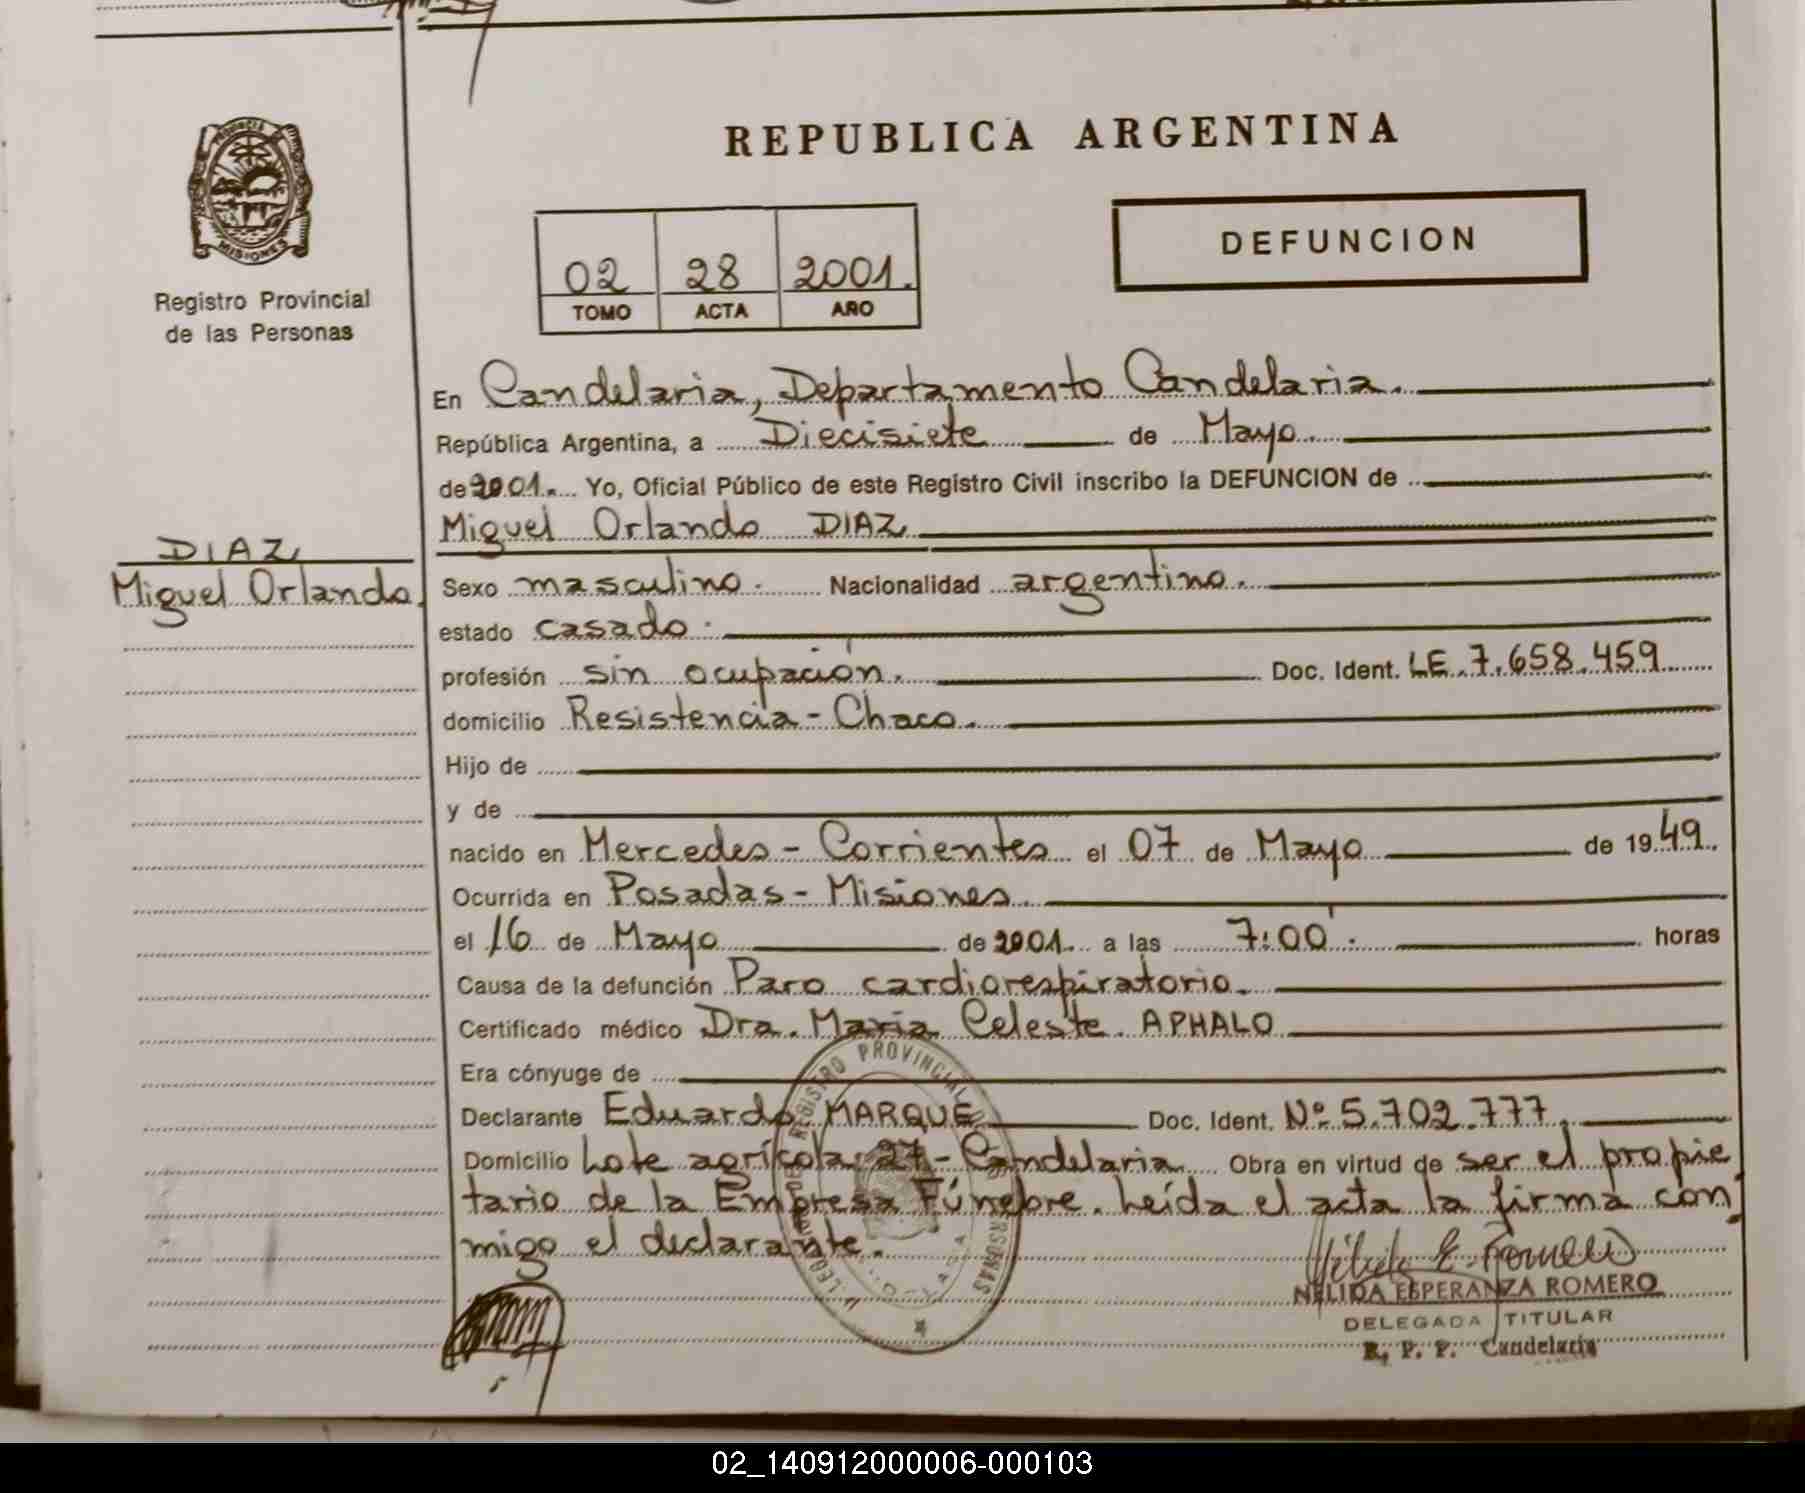 REPUBLICA ARGENTINA
PROVINCIA
MISIONES
Registro Provincial
de las Personas
02 28 2001.
TOMO ACTA AÑO
DEFUNCION
En Candelaria, Departamento Candelaria.
República Argentina, a Diecisiete de Mayo.
de 2001. Yo, Oficial Público de este Registro Civil inscribo la DEFUNCION de
Miguel Orlando DIAZ
DIAZ
Miguel Orlando.
Sexo masculino. Nacionalidad argentino.
estado casado.
profesión sin ocupación. Doc. Ident. LE.7.658.459
domicilio Resistencia - Chaco.
Hijo de
y de
nacido en Mercedes - Corrientes el 07 de Mayo de 1949.
Ocurrida en Posadas - Misiones.
el 16 de Mayo de 2001. a las 7:00'. horas
Causa de la defunción Paro cardiorespiratorio.
Certificado médico Dra. Maria Celeste APHALO
Era cónyuge de
Declarante Eduardo MARQUE Doc. Ident. Nº 5.702.777.
Domicilio Lote agrícola 27 - Candelaria Obra en virtud de ser el propie
tario de la Empresa Fúnebre. Leída el acta la firma con
migo el declarante.
REGISTRO PROVINCIAL DE LAS PERSONAS
NELIDA ESPERANZA ROMERO
DELEGADA TITULAR
R. P. P. Candelaria
02_140912000006-000103